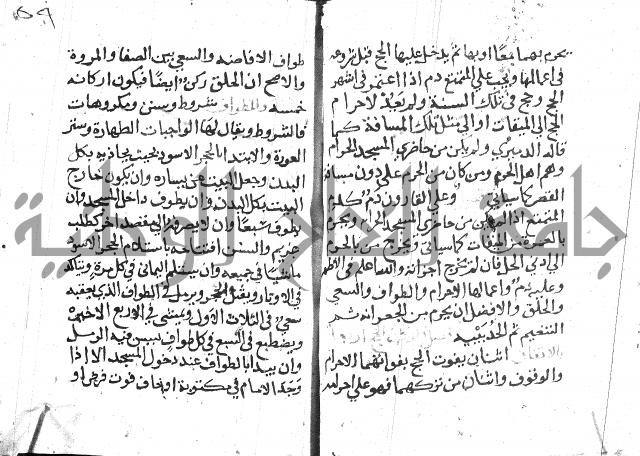 يحرم بهما معًا او بها ثم يدخل عليها الحج قبل شروعه
في اعمالها ويجب علي المتمتع دم اذا اعتمر في اشهر
الحج وحج في تلك السنة ولم يَعُدْ لاحرام
الحج الي الميقات او الي مثل تلك المسافة كما
قاله الدميري ولم يكن من حاضري المسجد الحرام
وهم اهل الحرم ومن كان من الحرم علي دون مسافة
القصر كما سيأتي وعلي القارن دم كدم
المتمتع اذا لم يكن من حاضري المسجد الحرام ويحرم
بالعمرة من الميقات كما سياتي ويخرج من بالحرم
الي ادني الحل فان لم يخرج اجزائه
وعليه دم واعمالها الاحرام والطواف والسعي
والحلق والافضل ان يحرم من الجعرانه ثم
التنعيم ثم الحديبية
اثنان يفوت الحج بفواتهما الاحرام
والوقوف واثنان من تركهما فهو علي احرامه
٥٩
طواف الافاضه والسعي بين الصفا والمروة
والاصح ان الحلق ركن ايضًا فيكون اركانه
خمسه وللطواف شروط وسنن ومكروهات
فالشروط ويقال لها الواجبات الطهارة وستر
العورة والابتدا بالحجر الاسود بحيث يحاذيه بكل
البدن وجعل البيت عن يساره وان يكون خارج
البيت بكل البدن وان يطوف داخل المسجد وان
يطوف سبعًا وان لا يصرفه الي مقصد اخر كطلب
غريم والسنن افتتاحه باستلام الحجر الاسود
ماشيًا في جميعه وان يستلم اليماني في كل مرة ويتاكد
في الاوتار ويقبل الحجر ويرمل في الطواف الذي يعقبه
سعي في الثلاث الاول ويمشي في الاربع الاخيرة
ويضطبع في السبع في كل طواف يسن فيه الرمل
وان يبدا بالطواف عند دخول المسجد الا اذا
وجد الامام في مكتوبة او خاف فوت فرض او
جامعة الإمام الوطنية